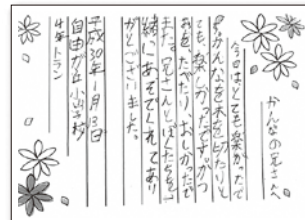 かんなの兄さんへ
今日はとても楽かったで
す。かんなを木をけずたりと
ても、楽しかったです。がつ
おを、たべたり、おしかったで
また。兄さんとぼくたちを一
緒にあそでくれてあり
がとございました。
平成30年1月13日
自由が丘小学校
4年トラン